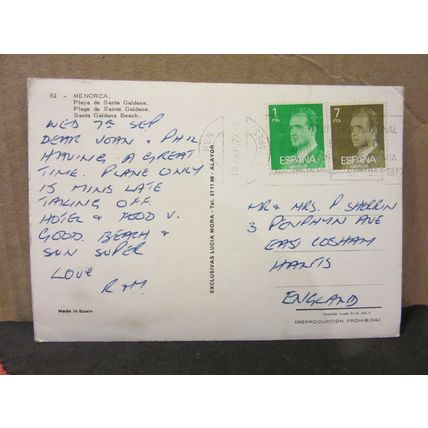 62 - MENORCA.
Playa de Santa Galdana.
Plage de Sainte Galdana.
Santa Galdana Beach.
WED 7TH SEP
DEAR JOAN & PHIL
HAVING A GREAT
TIME. PLANE ONLY
15 MINS LATE
TAKING OFF.
HOTEL & FOOD V.
GOOD. BEACH &
SUN SUPER
LOVE
R & M
Made in Spain
EXCLUSIVAS LUCIA MORA - Tel. 37 11 96 - ALAYOR.
1
PTA
ESPAÑA
7
PTA
ESPAÑA
MR & MRS. P SHERRIN
3 PENRHYN AVE
EAST COSHAM
HANTS
ENGLAND
(REPRODUCCION PROHIBIDA)